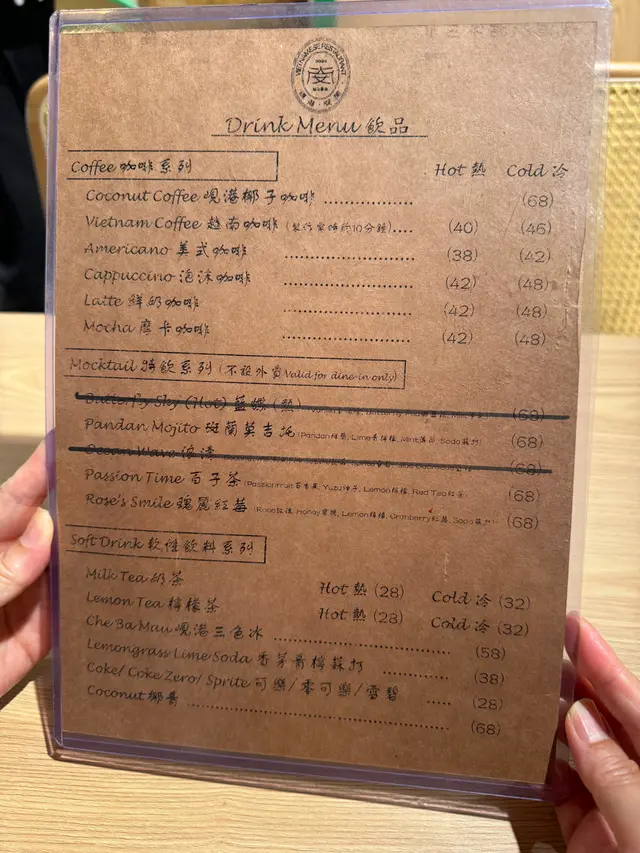 VIETNAMESE RESTAURANT
Drink Menu 飲品
Coffee 咖啡系列 Hot 熱 Cold 冷
Coconut Coffee 峴港椰子咖啡 .................. (68)
Vietnam Coffee 越南咖啡 (製作需時約10分鐘).... (40) (46)
Americano 美式咖啡 .................. (38) (42)
Cappuccino 泡沫咖啡 .................. (42) (48)
Latte 鮮奶咖啡 .................. (42) (48)
Mocha 摩卡咖啡 .................. (42) (48)
Mocktail 特飲系列 (不設外賣 Valid for dine-in only)
Butterfly Sky (Hot) 藍蝶 (熱) (68)
Pandan Mojito 斑蘭莫吉托 (Pandan斑蘭, Lime青檸檬, Mint薄荷, Soda蘇打) (68)
Ocean Wave (68)
Passion Time 百子茶 (Passionfruit百香果, Yuzu柚子, Lemon檸檬, Red Tea紅茶) (68)
Rose's Smile 瑰麗紅莓 (Rose玫瑰, Honey蜜糖, Lemon檸檬, Cranberry紅莓, Soda蘇打) (68)
Soft Drink 軟性飲料系列
Milk Tea 奶茶 Hot 熱 (28) Cold 冷 (32)
Lemon Tea 檸檬茶 Hot 熱 (28) Cold 冷 (32)
Che Ba Mau 峴港三色冰 .................. (58)
Lemongrass Lime Soda 香茅青檸蘇打 (38)
Coke/ Coke Zero/ Sprite 可樂/零可樂/雪碧 ..... (28)
Coconut 椰青 .................. (68)